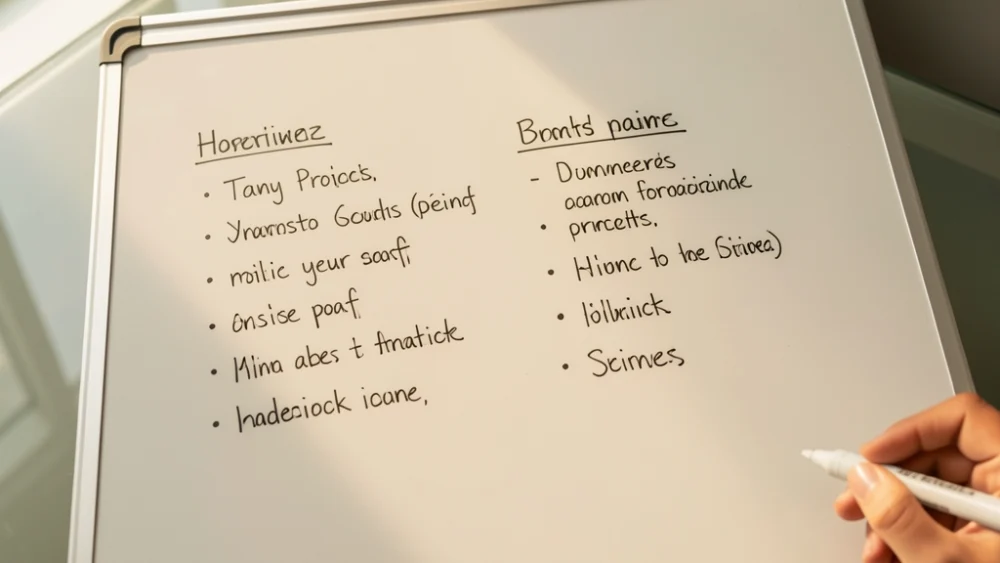 Horeriinez
• Tany Proiocts.
• Ynarnsto Goudts (péinf
• miliic yeur soarf,
• Onsise poaf
• Mina abes t fmatick
• hadeciock ioane,
Bomts' paire
- Dummeerés
acarom foroaioizinde
• princetts.
• Hionc to the Griioea)
• lollbriick
• Scirnes